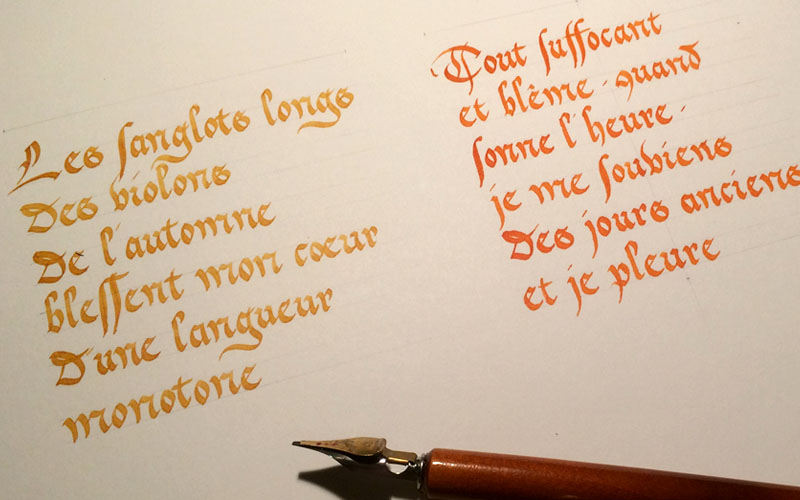 Les sanglots longs
Des violons
De l'automne
blessent mon cœur
D'une langueur
monotone
Tout suffocant
et blême · quand
sonne l'heure ·
je me souviens
Des jours anciens
et je pleure